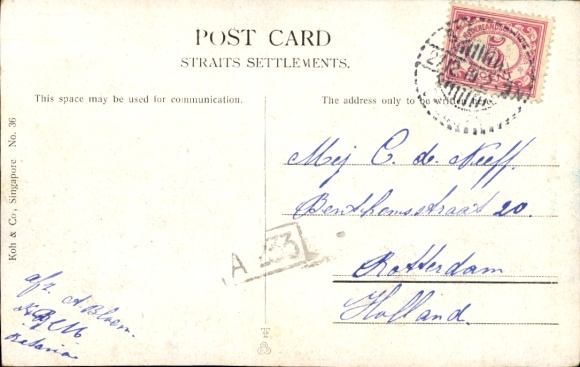 POST CARD
STRAITS SETTLEMENTS.
This space may be used for communication.
The address only to be written here.
Koh & Co., Singapore No. 36
NEDERLANDSCH
5
Mej C. de Neeff.
Benthemsstraat 20.
Rotterdam
Holland.
A 33
afz. A Bloem.
Batavia